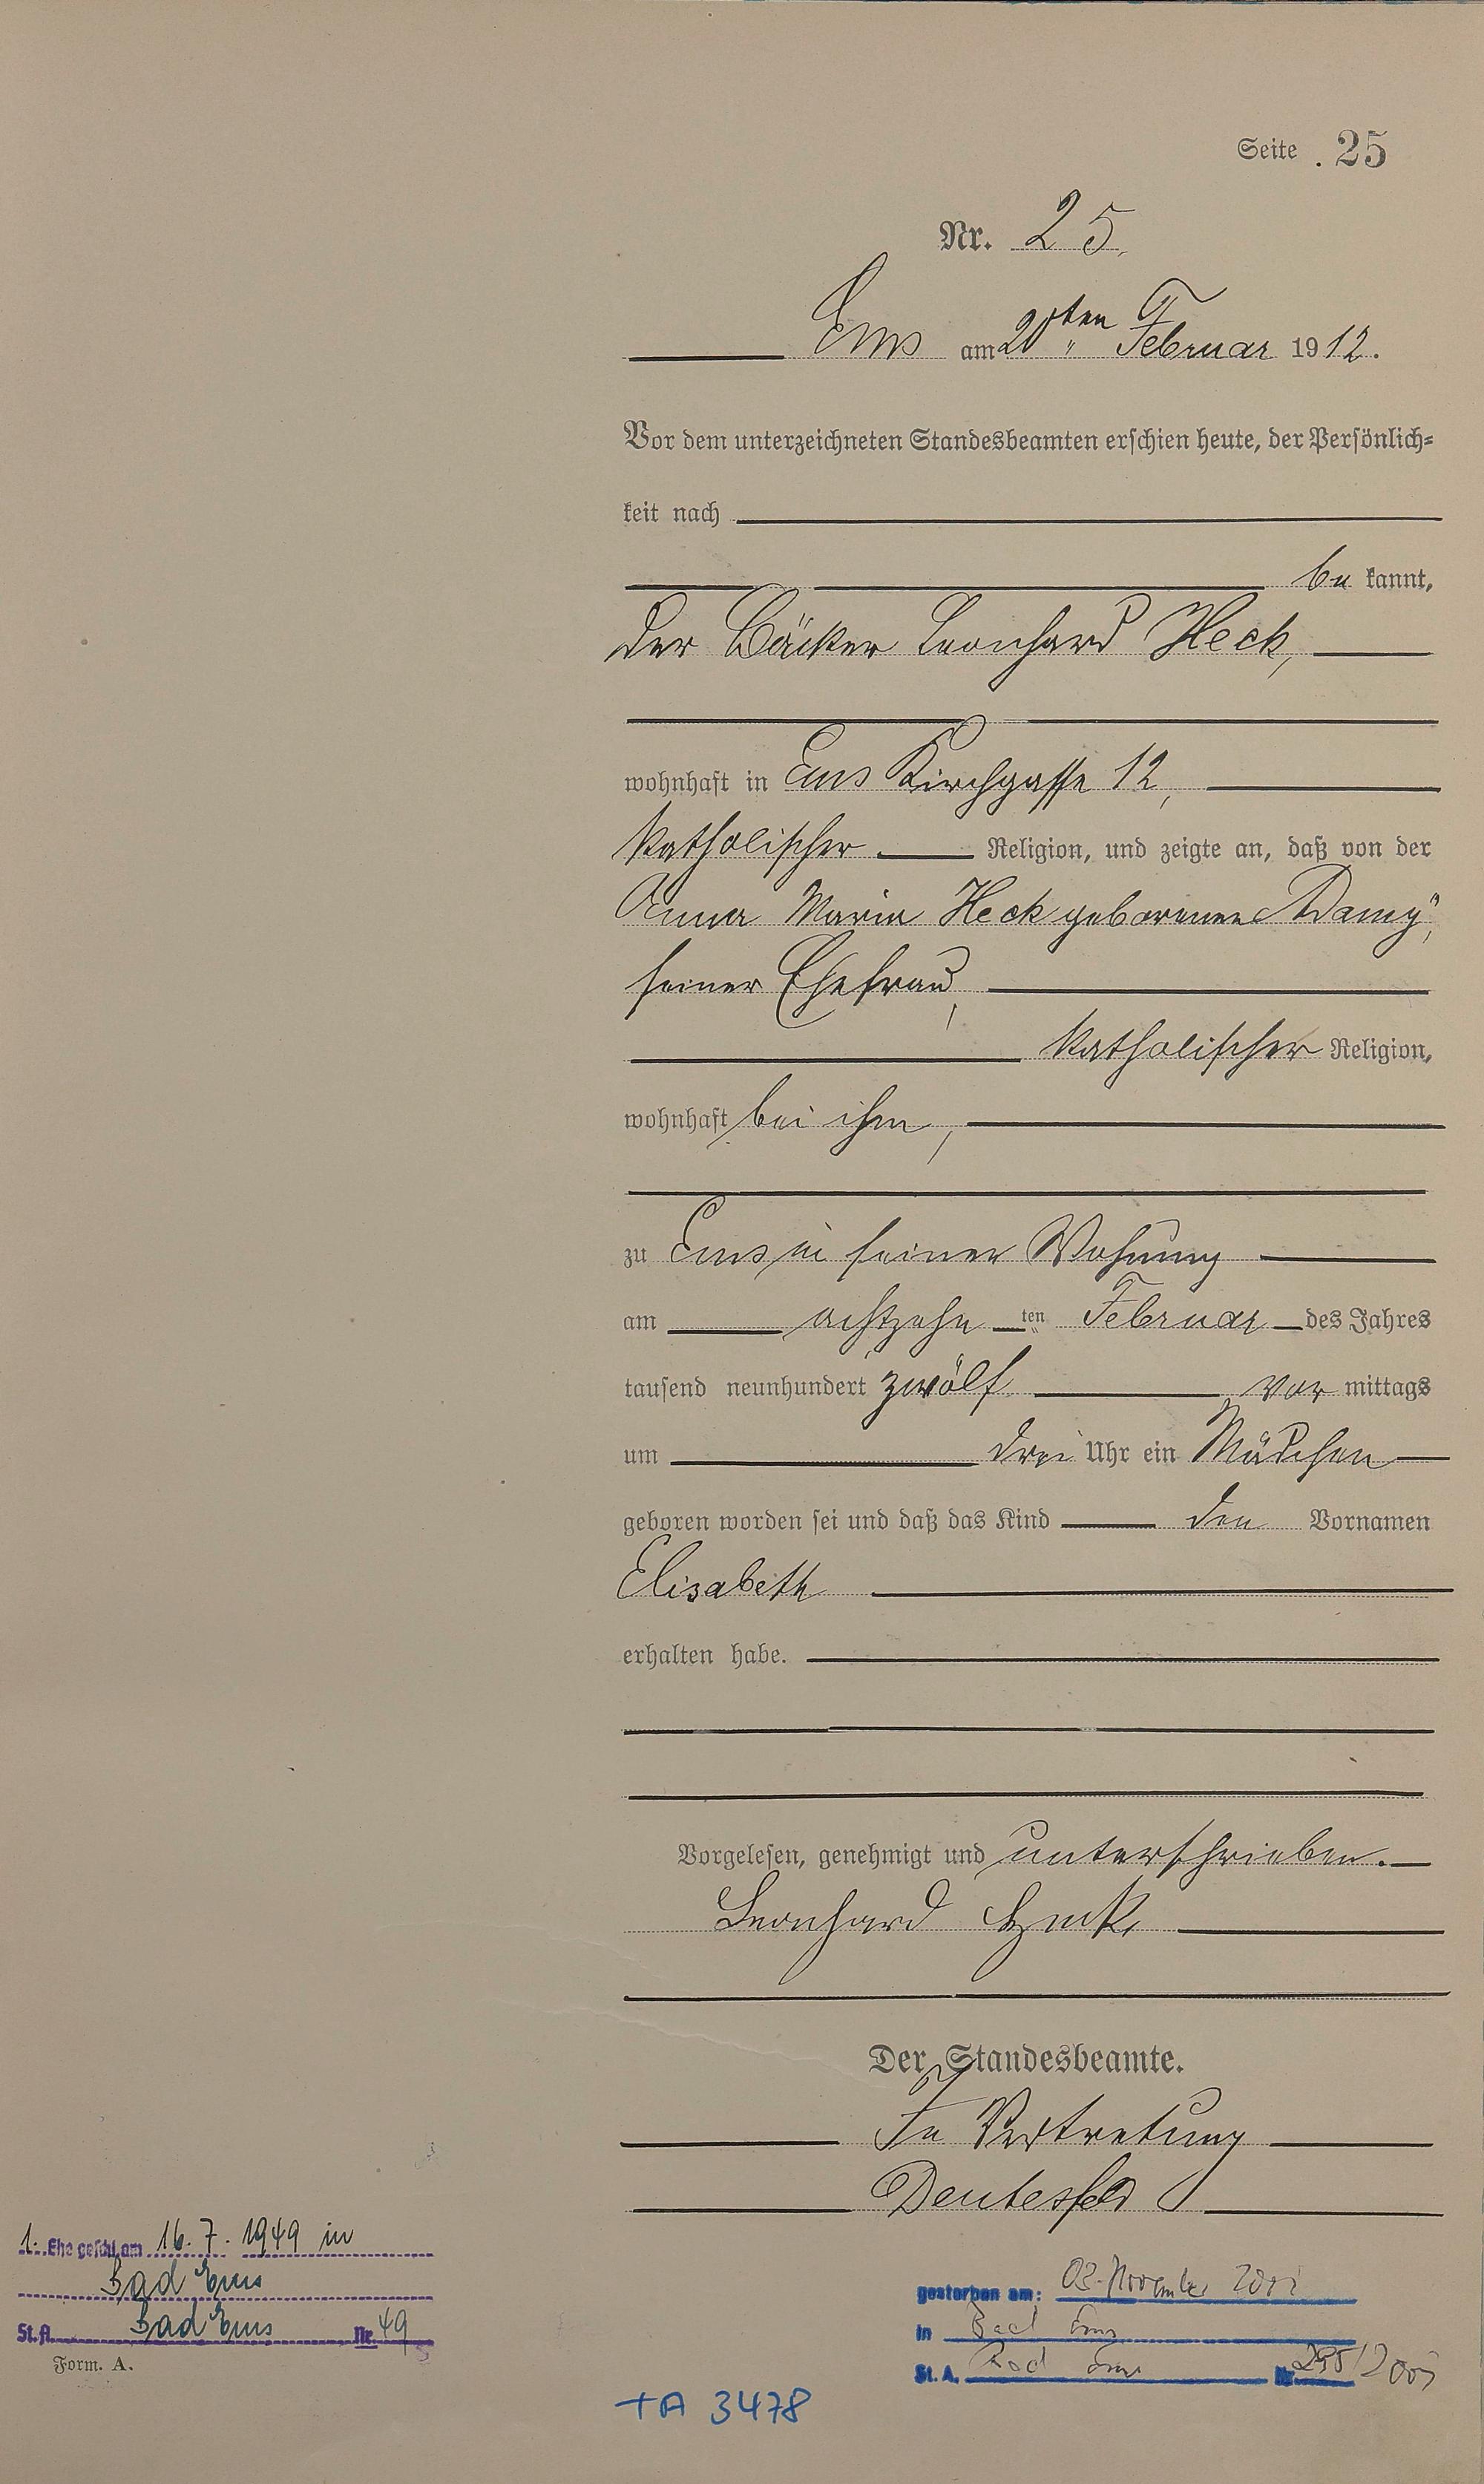 Seite 25
Nr. 25.
Ems am 20ten Februar 1912.
Vor dem unterzeichneten Standesbeamten erschien heute, der Persönlich-
keit nach
be kannt,
der Bäcker Leonhard Heck,
wohnhaft in Ems Kirchgasse 12,
katholischer Religion, und zeigte an, daß von der
Anna Maria Heck geborenen
seiner Ehefrau,
katholischer Religion,
wohnhaft bei ihm,
zu Ems in seiner Wohnung
am achtzehn ten Februar des Jahres
tausend neunhundert zwölf vor mittags
um drei Uhr ein Mädchen
geboren worden sei und daß das Kind den Vornamen
Elisabeth
erhalten habe.
Vorgelesen, genehmigt und unterschrieben.
Leonhard Heck
Der Standesbeamte.
In Vertretung
1. Ehe geschl. am 16.7.1949 in
Bad Ems
St.A. Bad Ems Nr. 49
Form. A.
gestorben am: 03. November
in Bad Ems
St. A. Bad Ems Nr.
TA 3478